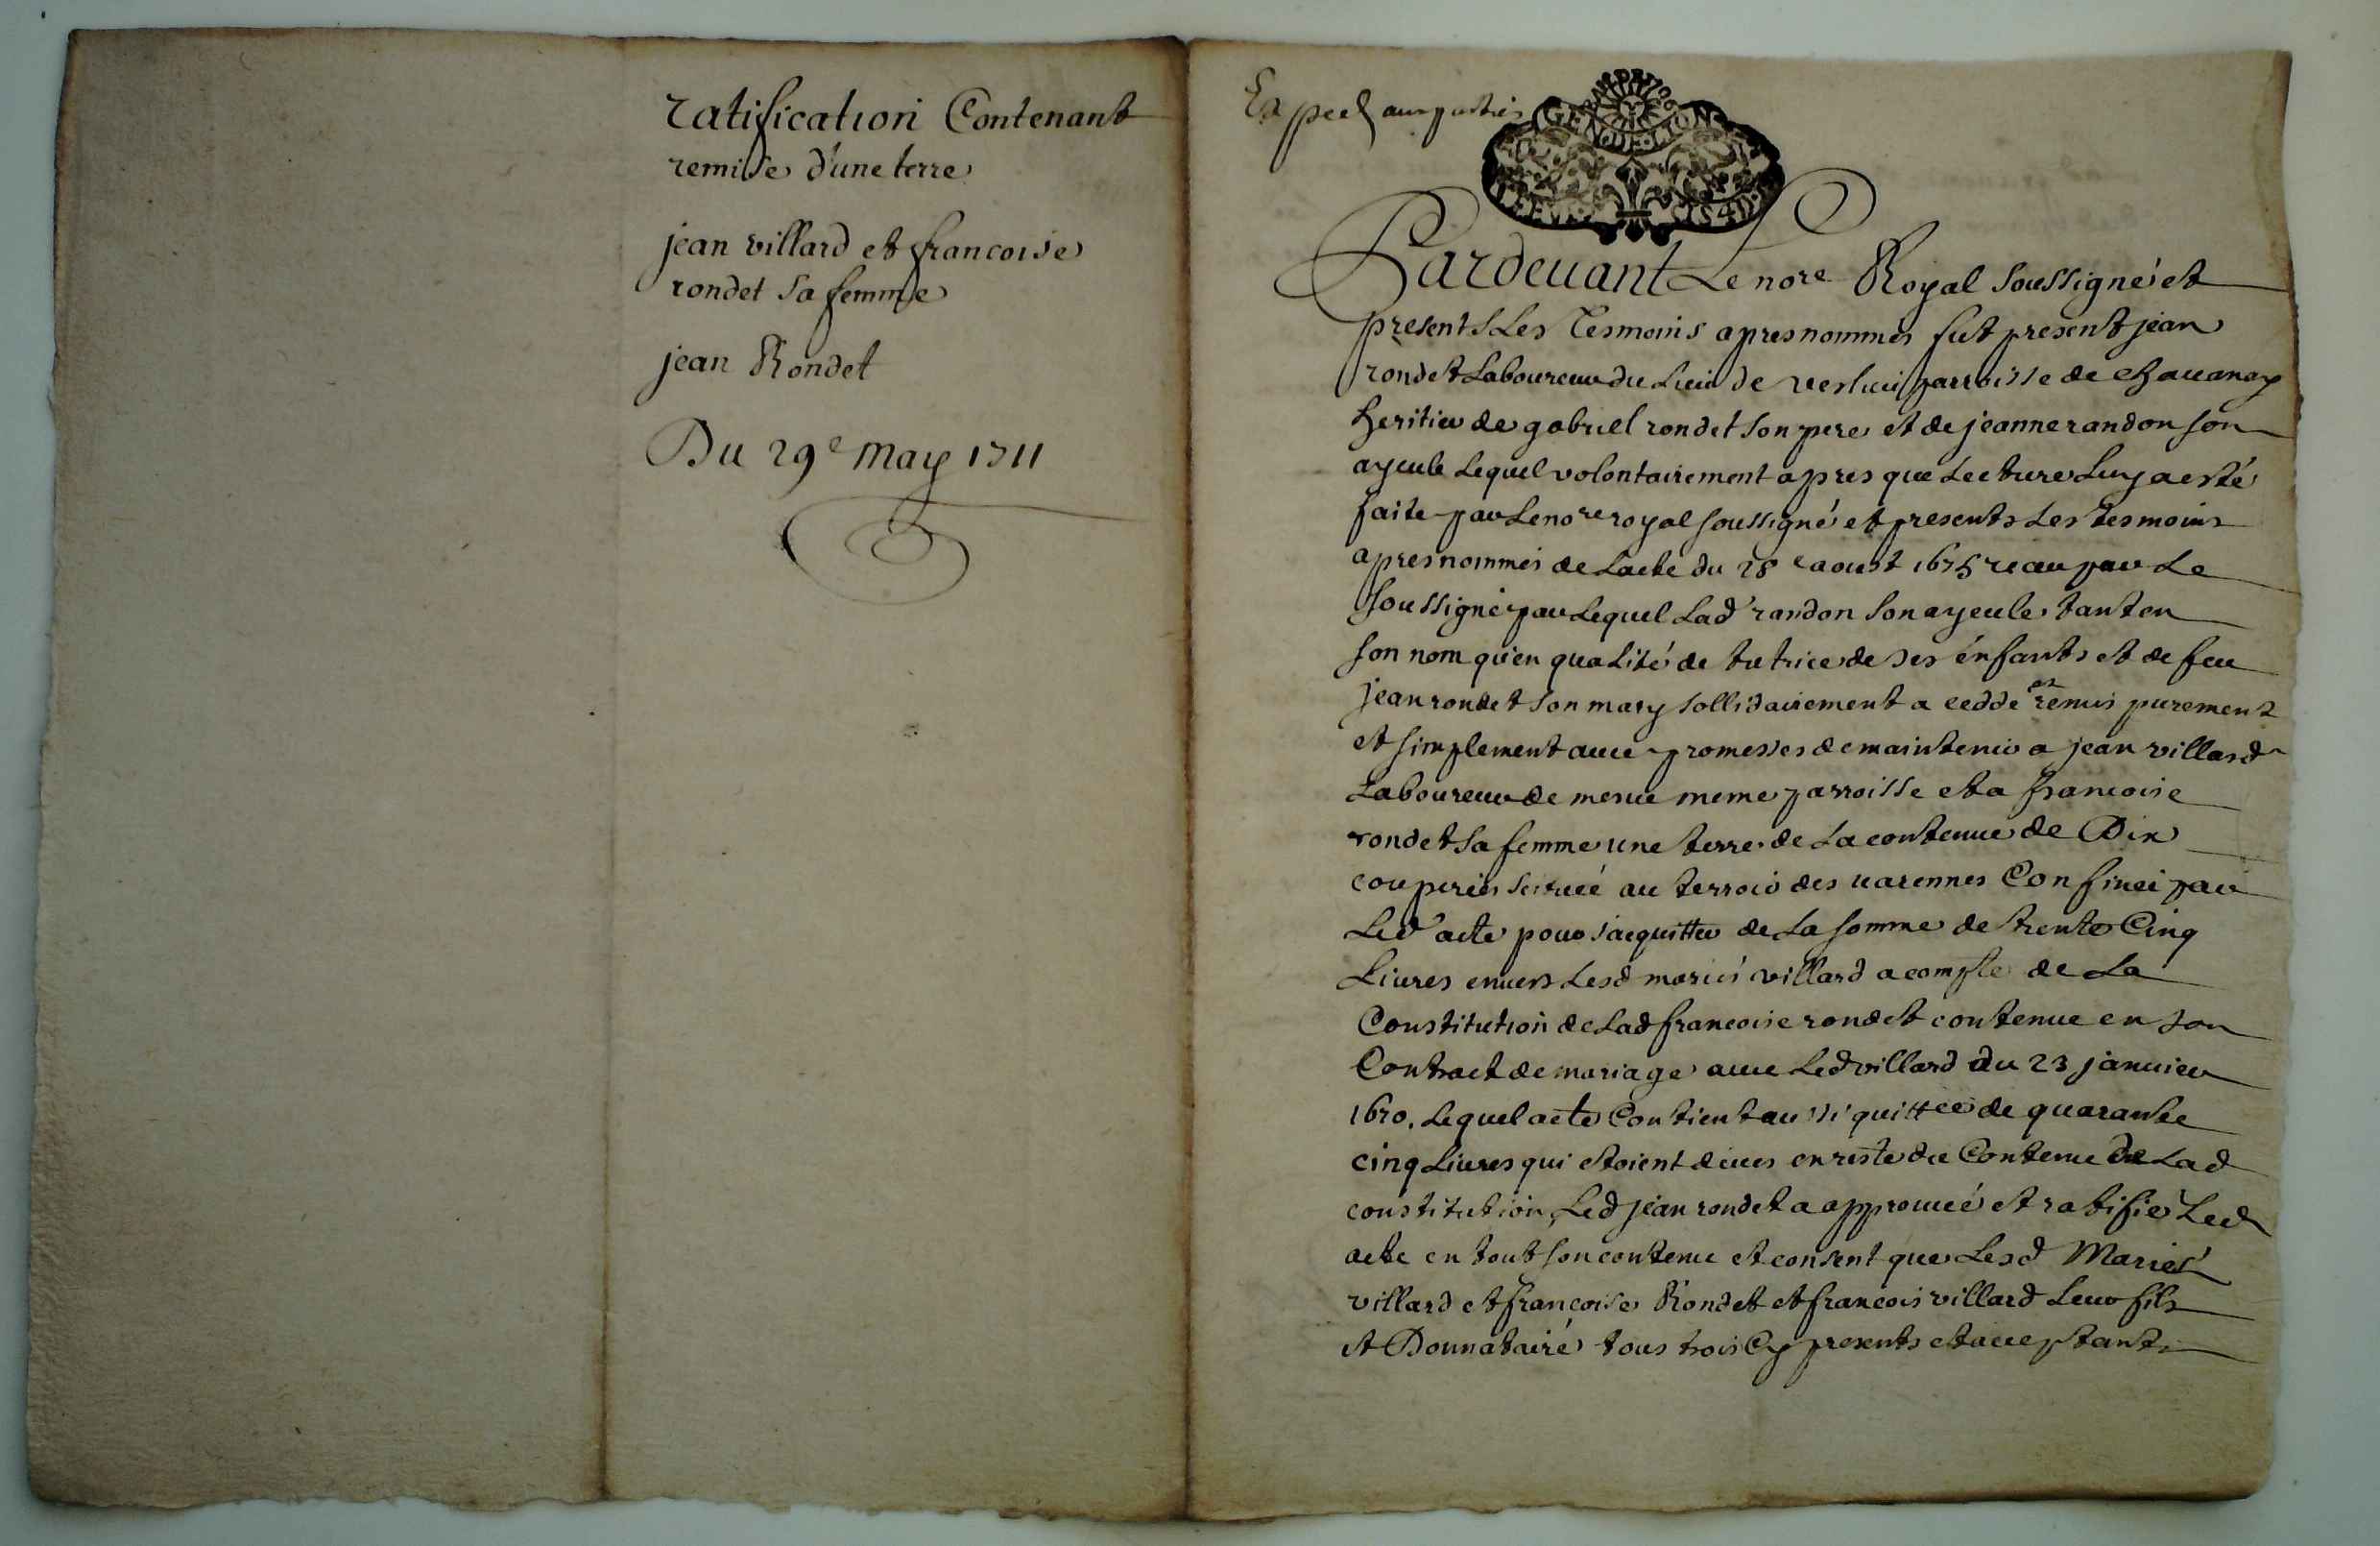 ratification Contenant
remise d'une terre
jean villard et francoise
rondet sa femme
jean Rondet
Du 29e may 1711
Exped aux parties
GEN DE LION
Pardeuant Le nore Royal soussigné et
presents Les Tesmoins apres nommés fut present jean
rondet Laboureur du Lieu de verlieu parroisse de chauanay
heritier de gabriel rondet son pere et de jeanne randon son
ayeule Lequel volontairement apres que Lecture Luy a esté
faite par Le nore royal soussigné et presents Les tesmoins
apres nommés de Lacte du 28e aoust 1675 receu par Le
soussigné par Lequel Lad randon son ayeule tant en
son nom qu'en qualité de tutrice de ses énfants et de feu
jean rondet son mary sollidairement a ceddé et remis purement
et simplement auec promesses de maintenir a jean villard
Laboureur de mesme parroisse et a francoise
rondet sa femme une terre de La contenue de Dix
couperées scituée au terroir des varennes Confinée par
Led acte pour s'acquitter de La somme de trente Cinq
Liures enuers Lesd mariés villard a compte de La
Constitution de Lad francoise rondet contenue en son
Contract de mariage auec Led villard du 23 januier
1670. Lequel acte Contient aussi quittce de quarante
cinq Liures qui estoient deues en reste du Contenu de Lad
constitution, Led jean rondet a approuué et ratifié Led
acte en tout son contenu et consent que Lesd Mariés
villard et francoise Rondet et francois villard Leur fils
et Donnataire tous trois Cy presents et acceptants